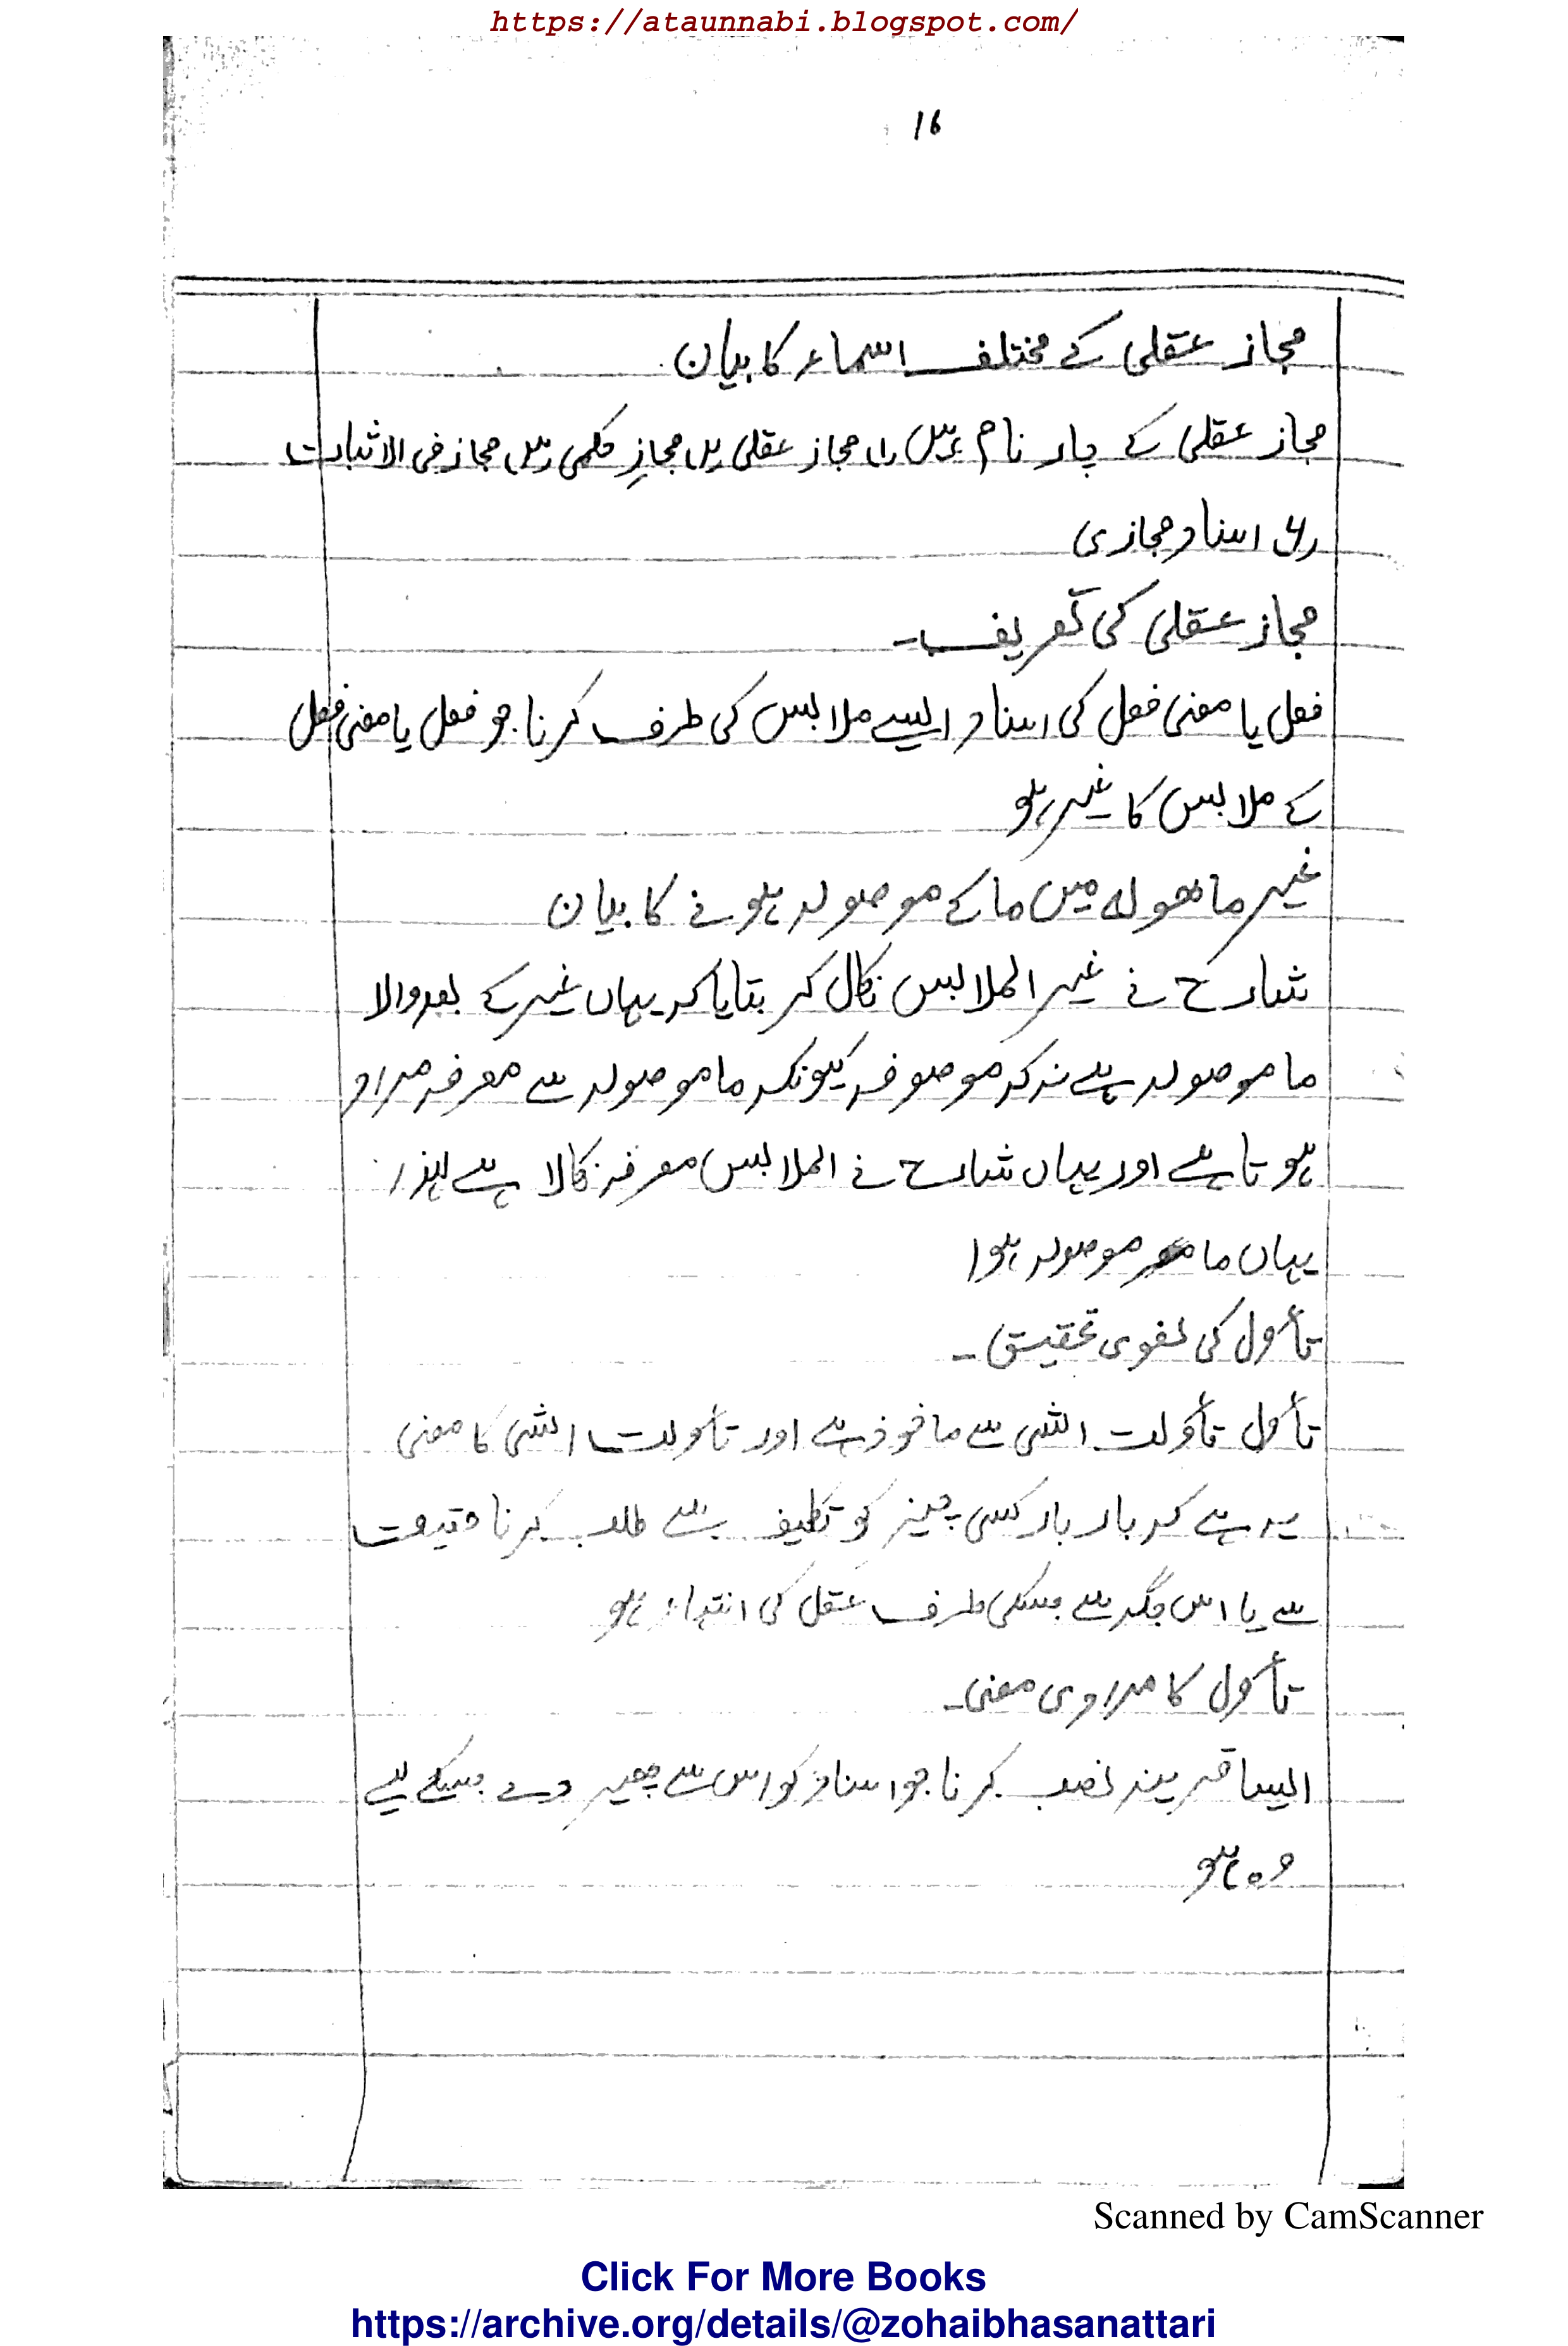 https://ataunnabi.blogspot.com/
16
مجاز عقلی کے مختلف اسماء کا بیان
مجاز عقلی کے چار نام ہیں (1) مجاز عقلی (2) مجازِ حکمی (3) مجاز فی الاثبات
(4) اسناد مجازی
مجاز عقلی کی تعریف۔
فعل یا معنی فعل کی اسناد ایسے ملابس کی طرف کرنا جو فعل یا معنی فعل
کے ملابس کا غیر ہو
غیر ما ھو لہ میں ما کے موصولہ ہونے کا بیان
شارح نے غیر الملابس نکال کر بتایا کہ یہاں غیر کے بعد والا
ما موصولہ ہے نہ کہ موصوفہ کیونکہ ما موصولہ سے معرفہ مراد
ہوتا ہے اور یہاں شارح نے الملابس معرفہ نکالا ہے لہذا
یہاں ما موصولہ ہوا
تأول کی لغوی تحقیق۔
تأول تأولت الشی سے ماخوذ ہے اور تأولت الشی کا معنی
یہ ہے کہ بار بار کسی چیز کو تکلیف سے طلب کرنا حقیقت
سے یا اس جگہ سے جسکی طرف عقل کی انتہاء ہو
تأول کا مرادی معنی۔
ایسا قرینہ نصب کرنا جو اسناد کو اس سے پھیر دے جسکے لیے
وہ ہو
Scanned by CamScanner
Click For More Books
https://archive.org/details/@zohaibhasanattari